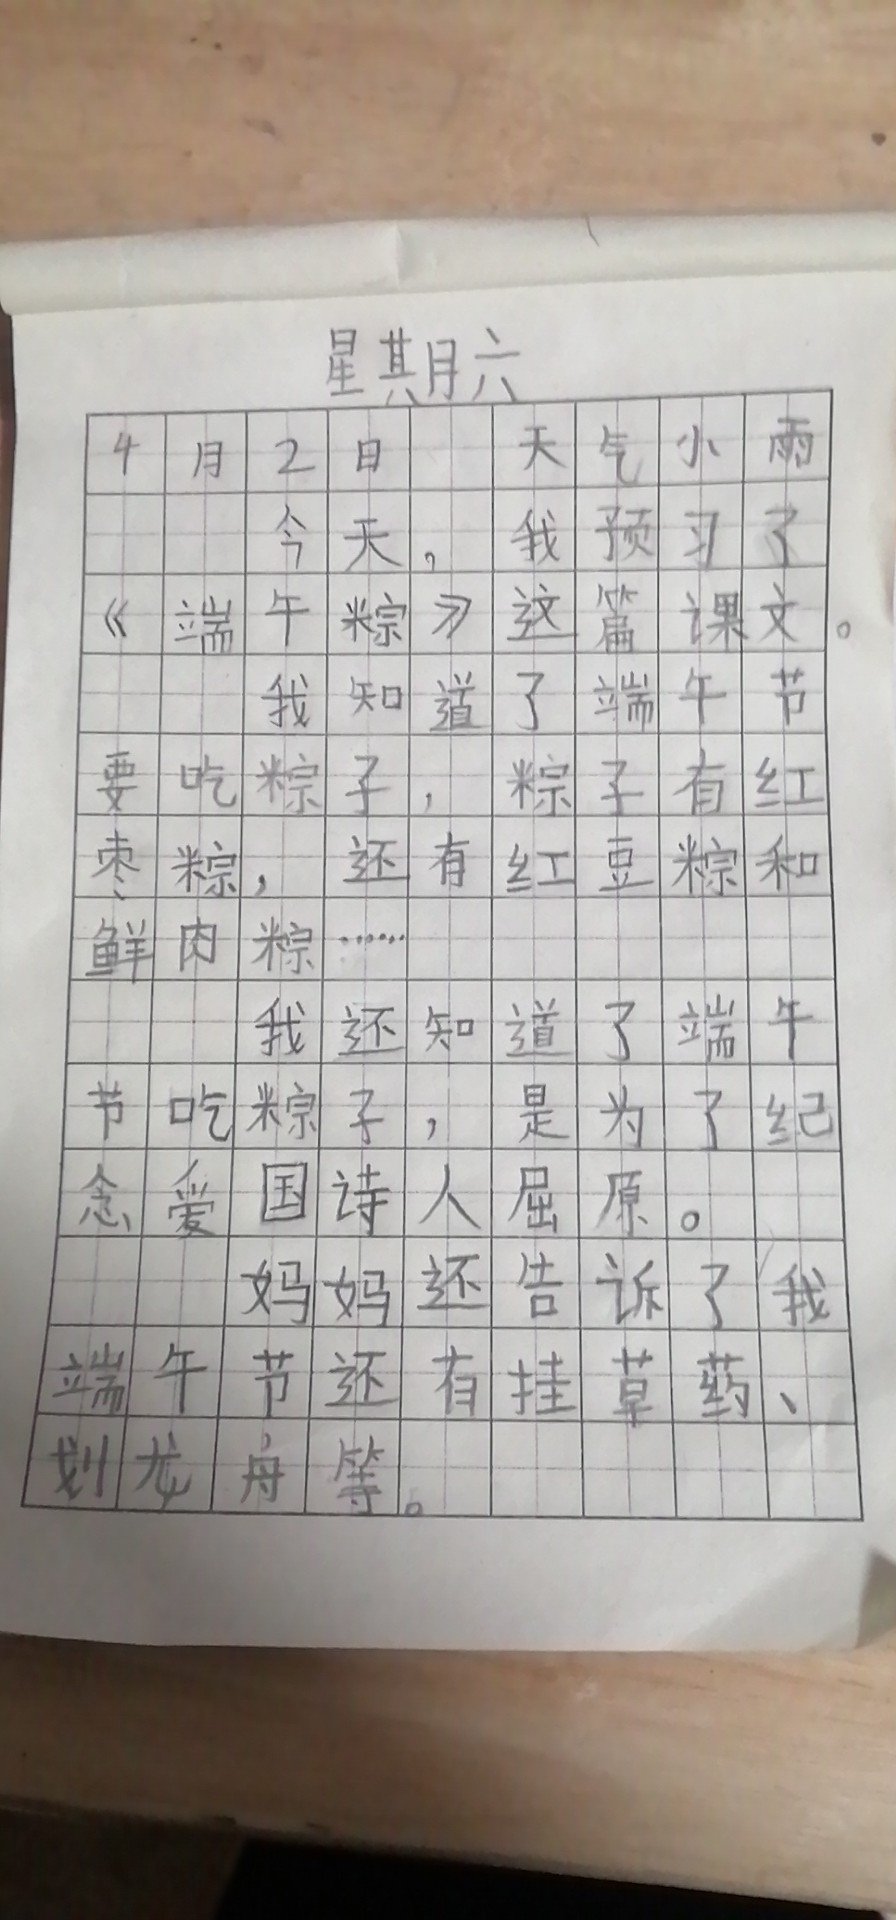 星期六
4月2日 天气小雨
今天，我预习了
《端午粽》这篇课文。
我知道了端午节
要吃粽子，粽子有红
枣粽，还有红豆粽和
鲜肉粽……
我还知道了端午
节吃粽子，是为了纪
念爱国诗人屈原。
妈妈还告诉了我
端午节还有挂草药、
划龙舟等。